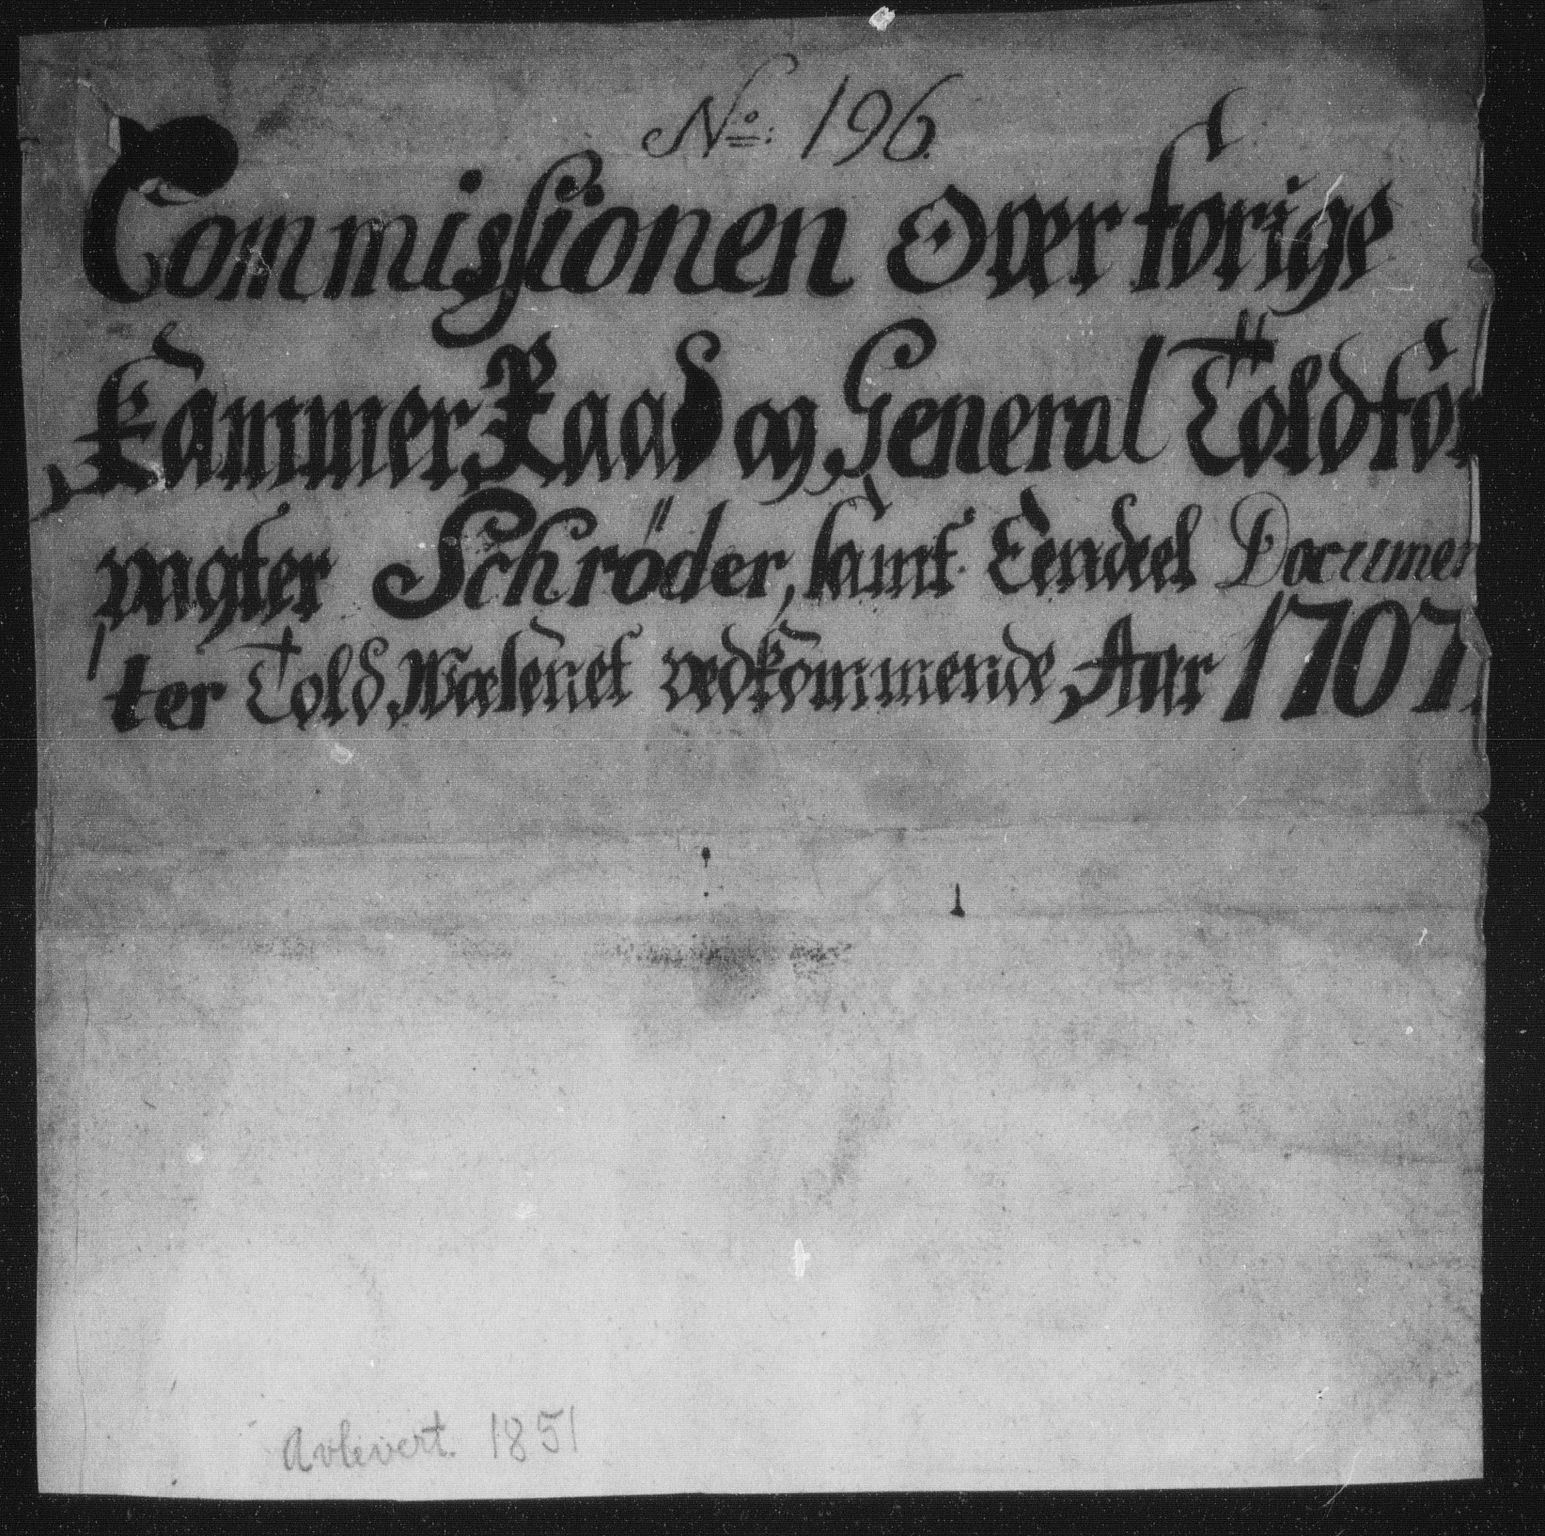 No: 196.
Commissionen over forige
Kammer Raad og General Toldfor
vagter Schrøder, samt Eendeel Documen
ter Told Wæsenet vedkommende, Aar 1707.
Avlevert 1851